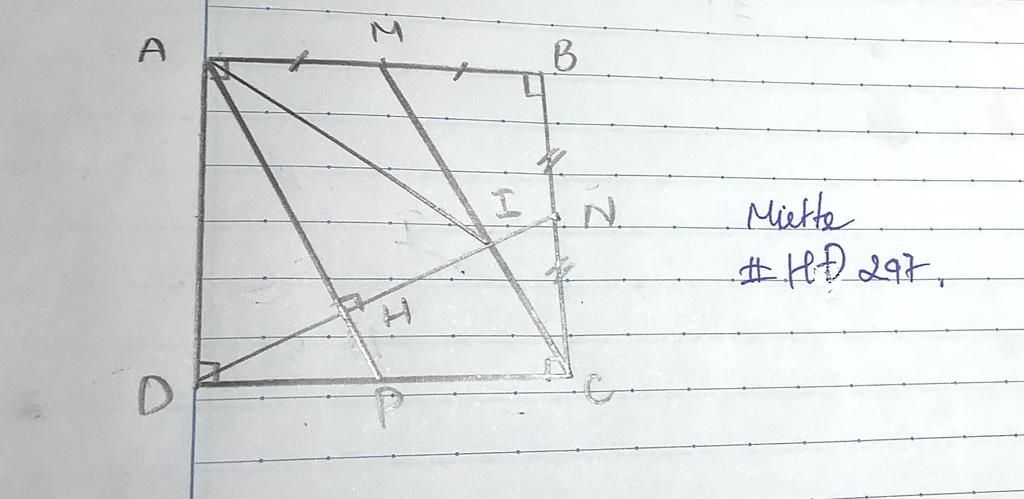 A M B
I N
H
D P C
Miette
#HĐ 297.